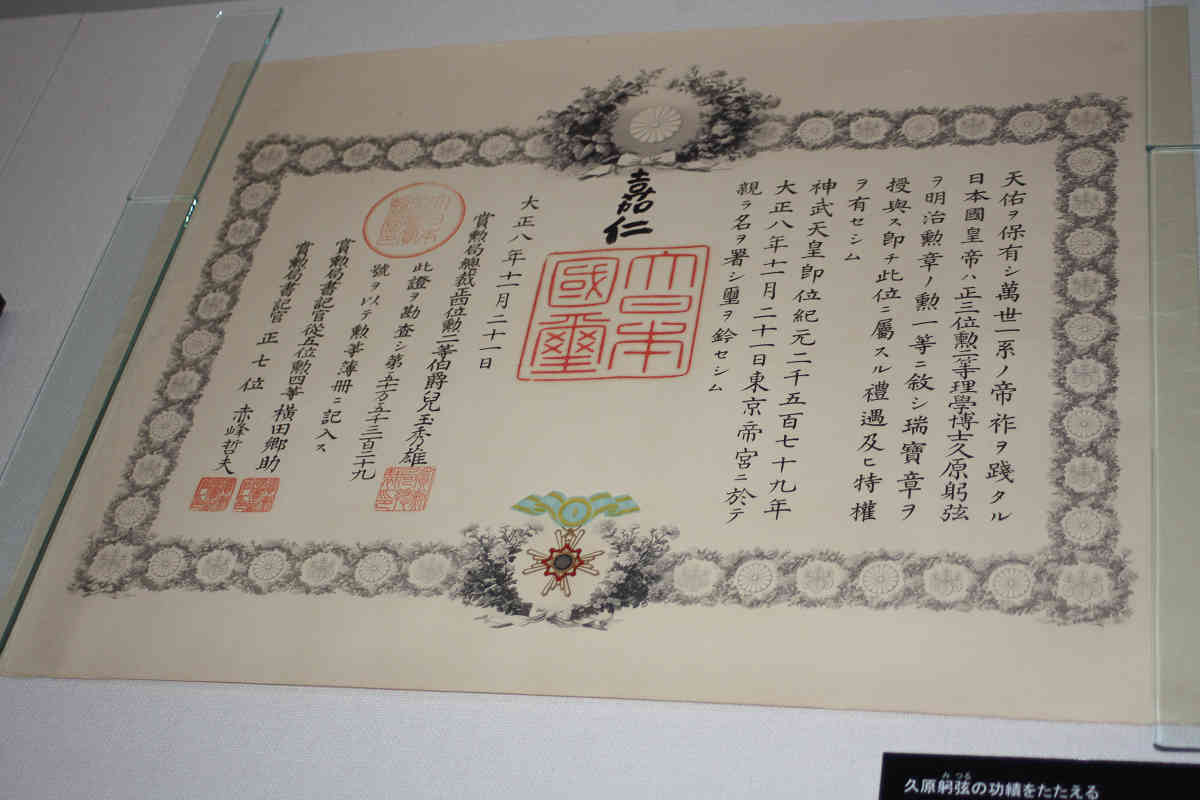 天佑ヲ保有シ萬世一系ノ帝祚ヲ踐タル
日本國皇帝ハ正三位勲二等理學博士久原躬弦
ヲ明治勲章ノ勲一等ニ敘シ瑞寶章ヲ
授與ス卽チ此位ニ屬スル禮遇及ヒ特權
ヲ有セシム
神武天皇卽位紀元二千五百七十九年
大正八年十一月二十一日東京帝宮ニ於テ
親ラ名ヲ署シ璽ヲ鈐セシム
嘉仁
大日本
國璽
大正八年十一月二十一日
賞勲局總裁正四位勲二等伯爵兒玉秀雄
此證ヲ勘査シ第五十万五千三百二十九
號ヲ以テ勲等簿册ニ記入ス
賞勲局書記官從五位勲四等橫田郷助
賞勲局書記官正七位赤峰哲夫
久原躬弦の功績をたたえる
みつる